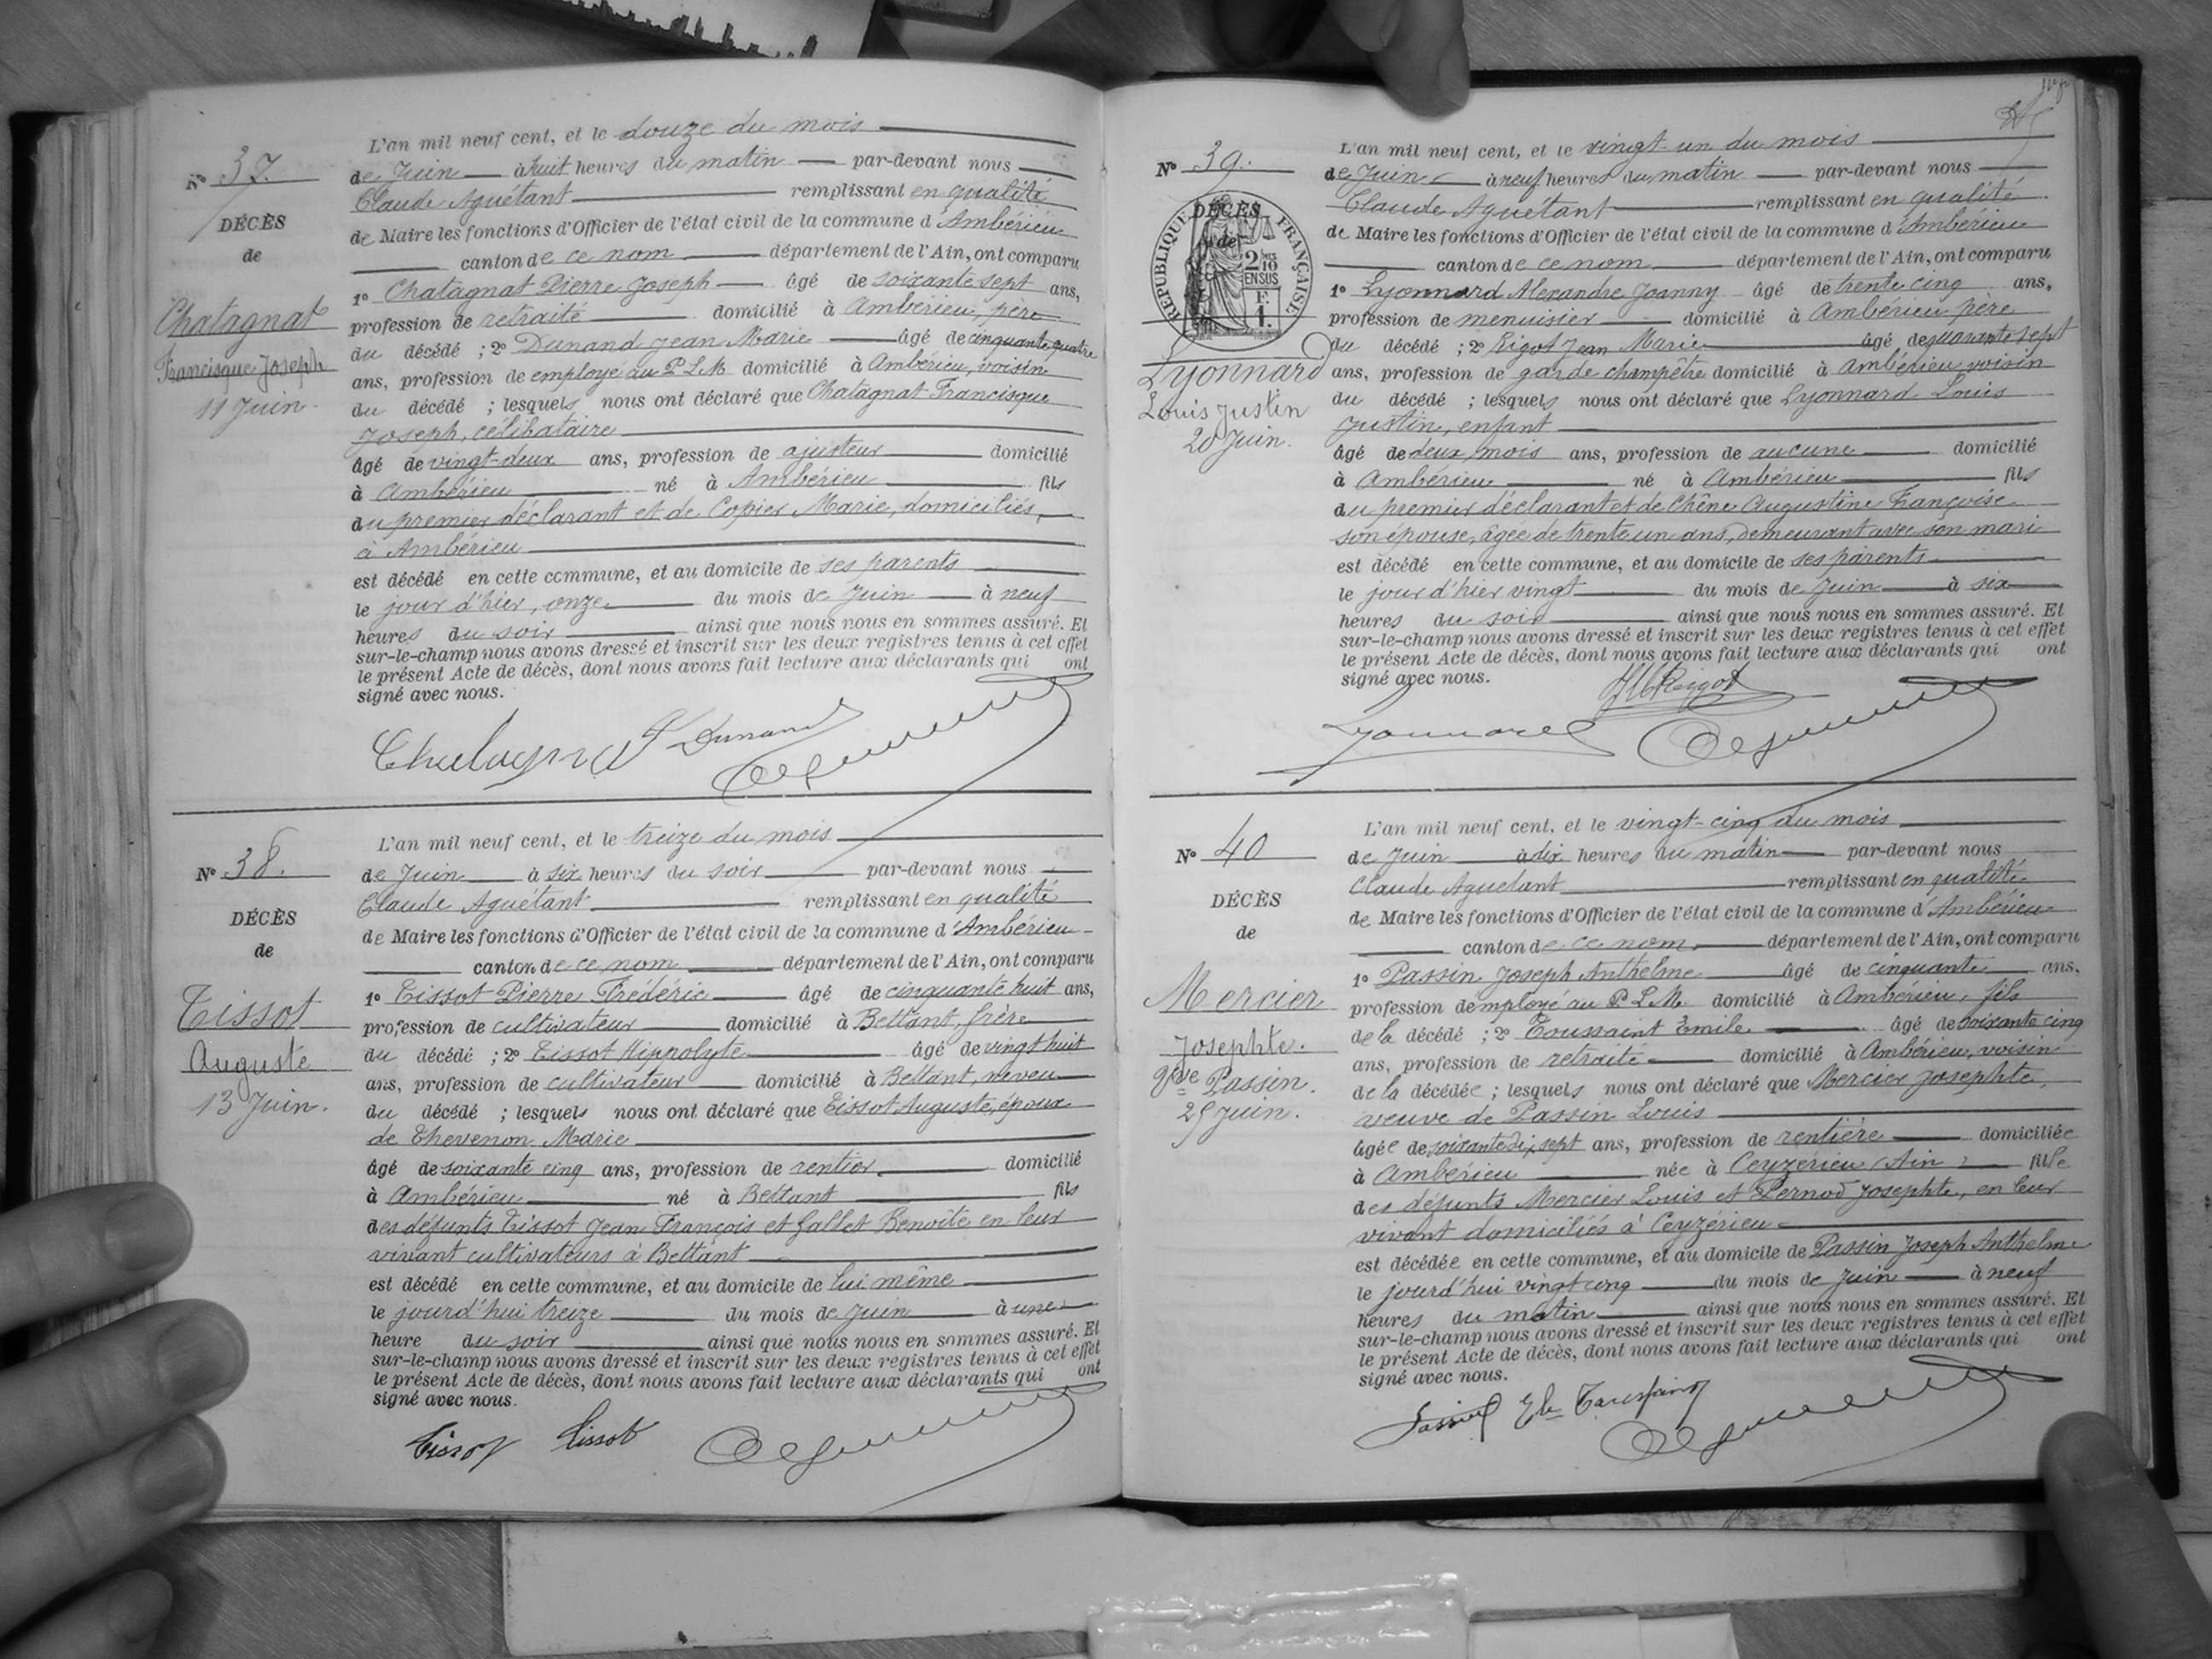 N° 37.
DÉCÈS
de
Chatagnat
Francisque Joseph
11 Juin.
L'an mil neuf cent, et le douze du mois
de Juin à huit heures du matin par-devant nous
Claude Aguétant remplissant en qualité
de Maire les fonctions d'Officier de l'état civil de la commune d'Ambérieu
canton de ce nom département de l'Ain, ont comparu
1° Chatagnat Pierre Joseph âgé de soixante sept ans,
profession de retraité domicilié à Ambérieu, père
du décédé ; 2° Dunand Jean Marie âgé de cinquante quatre
ans, profession de employé au P.L.M. domicilié à Ambérieu, voisin
du décédé ; lesquels nous ont déclaré que Chatagnat Francisque
Joseph, célibataire
âgé de vingt-deux ans, profession de ajusteur domicilié
à Ambérieu né à Ambérieu fils
du premier déclarant et de Copier Marie, domiciliés,
à Ambérieu
est décédé en cette commune, et au domicile de ses parents
le jour d'hier, onze du mois de Juin à neuf
heures du soir ainsi que nous nous en sommes assuré. Et
sur-le-champ nous avons dressé et inscrit sur les deux registres tenus à cet effet
le présent Acte de décès, dont nous avons fait lecture aux déclarants qui ont
signé avec nous.
Chatagnat Dunand
N° 38.
DÉCÈS
de
Tissot
Auguste
13 Juin.
L'an mil neuf cent, et le treize du mois
de Juin à six heures du soir par-devant nous
Claude Aguétant remplissant en qualité
de Maire les fonctions d'Officier de l'état civil de la commune d'Ambérieu
canton de ce nom département de l'Ain, ont comparu
1° Tissot Pierre Frédéric âgé de cinquante huit ans,
profession de cultivateur domicilié à Bettant, frère
du décédé ; 2° Tissot Hippolyte âgé de vingt huit
ans, profession de cultivateur domicilié à Bettant, neveu
du décédé ; lesquels nous ont déclaré que Tissot Auguste, époux
de Thevenon Marie
âgé de soixante cinq ans, profession de rentier domicilié
à Ambérieu né à Bettant fils
des défunts Tissot Jean François et Gallet Benoîte en leur
vivant cultivateurs à Bettant
est décédé en cette commune, et au domicile de lui même
le jourd'hui treize du mois de Juin à une
heure du soir ainsi que nous nous en sommes assuré. Et
sur-le-champ nous avons dressé et inscrit sur les deux registres tenus à cet effet
le présent Acte de décès, dont nous avons fait lecture aux déclarants qui ont
signé avec nous.
Tissot Tissot
N° 39.
DÉCÈS
de
RÉPUBLIQUE FRANÇAISE
2/10 EN SUS
1 F.
Lyonnard
Louis Justin
20 Juin.
L'an mil neuf cent, et le vingt un du mois
de Juin à neuf heures du matin par-devant nous
Claude Aguétant remplissant en qualité
de Maire les fonctions d'Officier de l'état civil de la commune d'Ambérieu
canton de ce nom département de l'Ain, ont comparu
1° Lyonnard Alexandre Joanny âgé de trente cinq ans,
profession de menuisier domicilié à Ambérieu père
du décédé ; 2° Rigot Jean Marie âgé de quarante sept
ans, profession de garde champêtre domicilié à Ambérieu, voisin
du décédé ; lesquels nous ont déclaré que Lyonnard Louis
Justin, enfant
âgé de deux mois ans, profession de aucune domicilié
à Ambérieu né à Ambérieu fils
du premier déclarant et de Chêne Augustine Françoise
son épouse, âgée de trente un ans, demeurant avec son mari
est décédé en cette commune, et au domicile de ses parents
le jour d'hier vingt du mois de Juin à six
heures du soir ainsi que nous nous en sommes assuré. Et
sur-le-champ nous avons dressé et inscrit sur les deux registres tenus à cet effet
le présent Acte de décès, dont nous avons fait lecture aux déclarants qui ont
signé avec nous.
Rigot
Lyonnard
N° 40
DÉCÈS
de
Mercier
Josephte.
Vve Passin.
25 Juin.
L'an mil neuf cent, et le vingt-cinq du mois
de Juin à dix heures du matin par-devant nous
Claude Aguétant remplissant en qualité
de Maire les fonctions d'Officier de l'état civil de la commune d'Ambérieu
canton de ce nom département de l'Ain, ont comparu
1° Passin Joseph Anthelme âgé de cinquante ans,
profession d'employé au P.L.M. domicilié à Ambérieu, fils
de la décédé ; 2° Toussaint Emile âgé de soixante cinq
ans, profession de retraité domicilié à Ambérieu, voisin
de la décédée ; lesquels nous ont déclaré que Mercier Josephte,
veuve de Passin Louis
âgée de soixante dix sept ans, profession de rentière domiciliée
à Ambérieu née à Ceyzérieu (Ain) fille
des défunts Mercier Louis et Pernod Josephte, en leur
vivant domiciliés à Ceyzérieu
est décédée en cette commune, et au domicile de Passin Joseph Anthelme
le jourd'hui vingt cinq du mois de Juin à neuf
heures du matin ainsi que nous nous en sommes assuré. Et
sur-le-champ nous avons dressé et inscrit sur les deux registres tenus à cet effet
le présent Acte de décès, dont nous avons fait lecture aux déclarants qui ont
signé avec nous.
Passin Toussaint